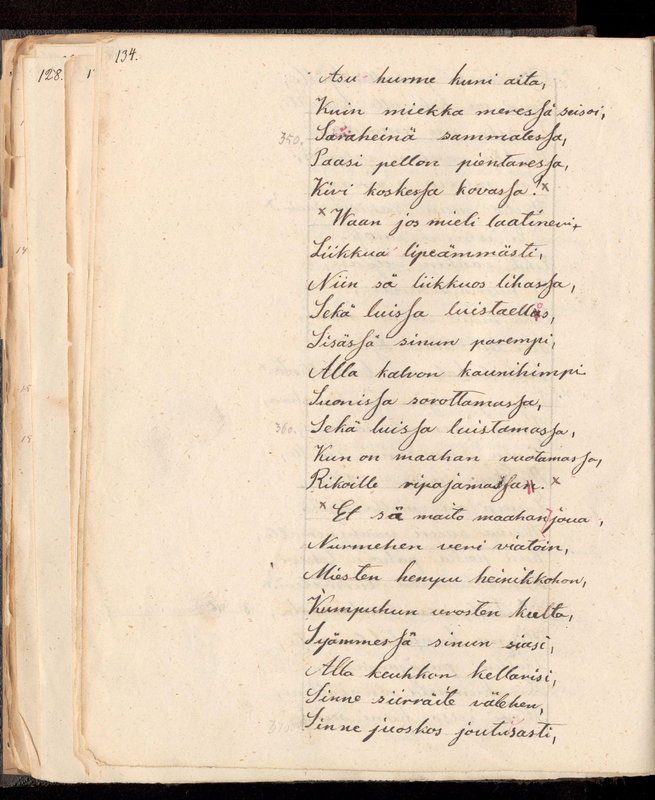 134.
128.
Asu hurme kuni aita,
Kuin miekka meressä seisoi,
350. Saraheinä sammalessa,
Paasi pellon pientaressa,
Kivi koskessa kovassa! x
x Waan jos mieli laatinevi,
Liikkua lipeämmästi,
Niin sä liikkuos lihassa,
Sekä luissa luistaellos,
Sisässä sinun parempi,
Alla kalvon kaunihimpi
Suonissa sorottamassa,
360. Sekä luissa luistamassa,
Kun on maahan vuotamassa,
Rikoille ripajamassan. x
x Et sä maito maahan joua,
Nurmehen veri viatoin,
Miesten hempu heinikkohon,
Kumpuhun urosten kulta,
Syämmessä sinun siasi,
Alla keuhkon kellarisi,
Sinne siirräite välehen,
370. Sinne juoskos joutusasti,